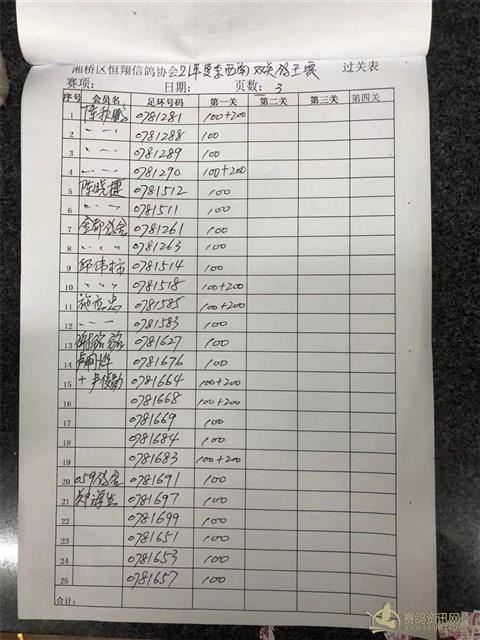 湘桥区恒翔信鸽协会21年度东西南双关鸽王赛 过关表
赛项： 日期： 页数：3
序号 会员名 足环号码 第一关 第二关 第三关 第四关
1 陈秋鹏 0781281 100+200
2 〃 — 〃 0781288 100
3 〃 — 〃 0781289 100
4 〃 — 〃 0781290 100+200
5 陈晓捷 0781512 100
6 〃 — 〃 0781511 100
7 金都鸽舍 0781261 100
8 〃 〃 〃 0781263 100
9 邱伟标 0781514 100
10 〃 〃 〃 0781518 100+200
11 施应忠 0781585 100+200
12 〃 — 〃 0781583 100
13 0781627 100
14 0781676 100
15 0781664 100+200
16 0781668 100+200
17 0781669 100
18 0781684 100
19 0781683 100+200
20 059鸽舍 0781691 100
21 郑海生 0781697 100
22 0781699 100
23 0781651 100
24 0781653 100
25 0781657 100
合计：
赛鸽资讯网